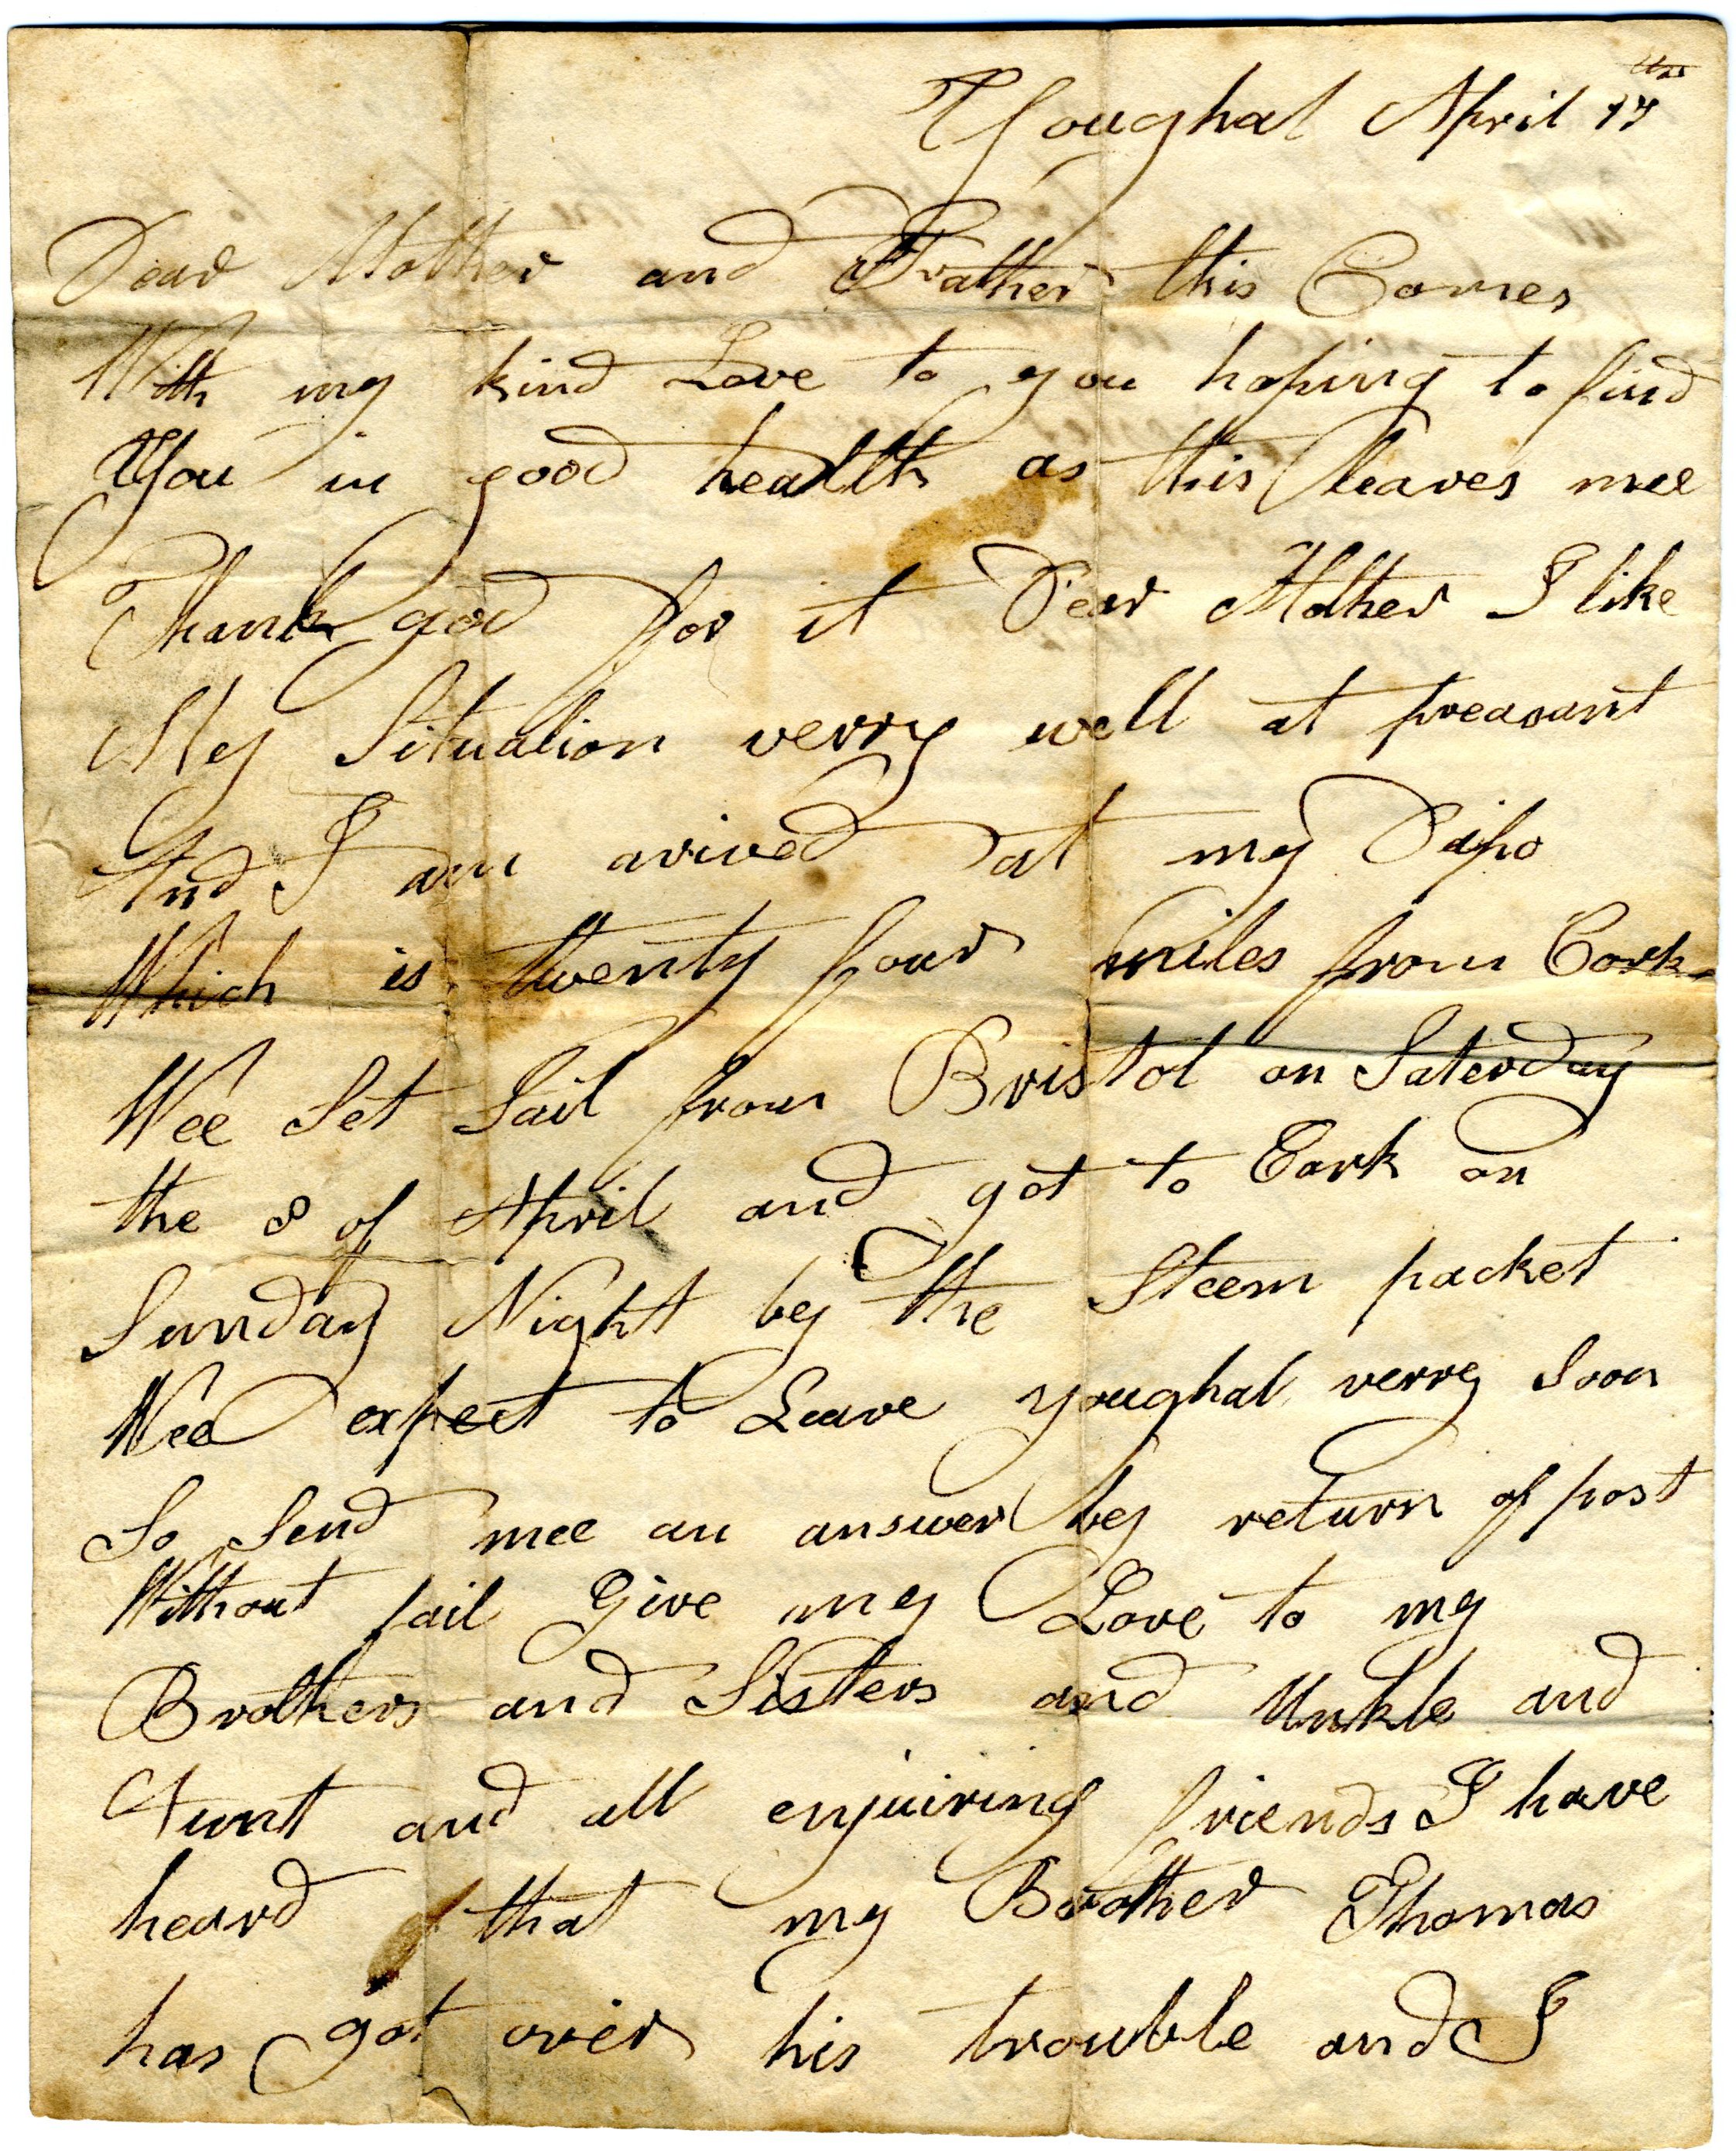 Youghal April 17
Dear Mother and Frather this Comes
With my kind Love to you hoping to find
You in good health as this leaves mee
Thank god for it Dear Mother I like
My Situation verry well at preasant
And I am arived at my Dipo
Which is twenty four miles from Cork
Wee Set Sail from Bristol on Saterday
the 8 of April and got to Cork on
Sunday Night by the Steem packet
Wee expect to Leave youghal verry Soon
So Send mee an answer by return of post
Without fail Give my Love to my
Brothers and Sisters and Unkle and
Aunt and all enjuiring friends I have
heard that my Brother Thomas
has got over his trouble and I